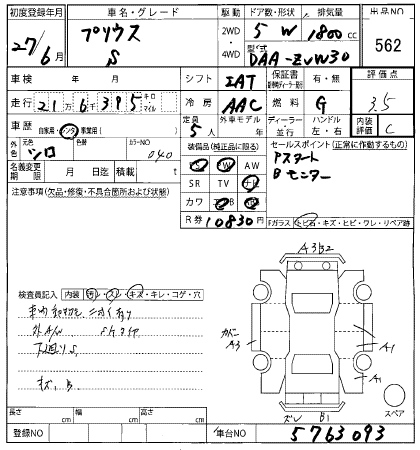 初度登録年月 車名・グレード 駆動 ドア数・形状 排気量 出品NO
27/6月 プリウス S 2WD 4WD 5 W 1800 cc 562
型式 DAA-ZVW30
車検 年 月 シフト IAT 保証書 有・無 評価点
走行 21万6千395 キロ マイル 冷房 AAC 燃料 G 3.5
車歴 自家用・レンタ・事業用( ) 定員 5人 外車モデル ディーラー 並行 ハンドル 左・右 内装評価 C
外色 元色 シロ 色替 カラーNO 040
装備品(純正品に限る) セールスポイント(正常に作動するもの)
PS PW AW Pスタート
SR TV ナビ Bモニター
名義変更期限 月 日迄 積載 t
カワ
注意事項(欠品・修復・不具合箇所および状態)
R券 10830円
Fガラス トビ石・キズ・ヒビ・ワレ・リペア跡
A3B2
検査員記入 内装 ヨゴレ・スレ・キズ・キレ・コゲ・穴
外A/W
下廻りS
キズ、B
カバー A3
A1
A1
B1
スペア
長さ cm 幅 cm 高さ cm
登録NO 車台NO 5763093